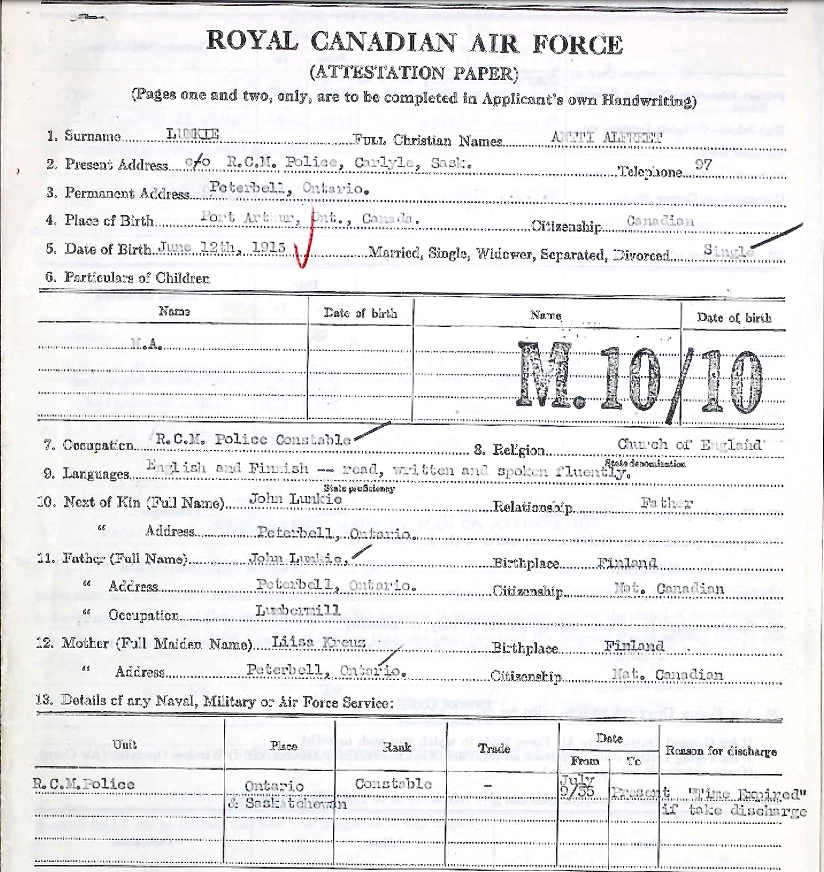 ROYAL CANADIAN AIR FORCE
(ATTESTATION PAPER)
(Pages one and two, only, are to be completed in Applicant's own Handwriting)
1. Surname LUNKIE FULL Christian Names ANTTI ALFRET
2. Present Address c/o R.C.M. Police, Carlyle, Sask. Telephone 97
3. Permanent Address Peterbell, Ontario.
4. Place of Birth Port Arthur, Ont., Canada. Citizenship Canadian
5. Date of Birth June 12th, 1915 Married, Single, Widower, Separated, Divorced Single
6. Particulars of Children
Name Date of birth Name Date of birth
N.A.
M.10/10
7. Occupation R.C.M. Police Constable 8. Religion Church of England
State denomination
9. Languages English and Finnish -- read, written and spoken fluently.
State proficiency
10. Next of Kin (Full Name) John Lunkie Relationship Father
" Address Peterbell, Ontario.
11. Father (Full Name) John Lunkie. Birthplace Finland
" Address Peterbell, Ontario. Citizenship Nat. Canadian
" Occupation Lumbermill
12. Mother (Full Maiden Name) Liisa Kreus Birthplace Finland
" Address Peterbell, Ontario. Citizenship Nat. Canadian
13. Details of any Naval, Military or Air Force Service:
Unit Place Rank Trade Date Reason for discharge
From To
R.C.M.Police Ontario Constable - July Present "Time Expired"
& Saskatchewan 9/35 if take discharge